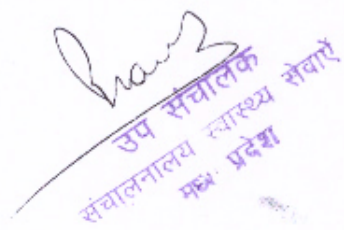 उप संचालक
संचालनालय स्वास्थ्य सेवाएें
मध्य प्रदेश